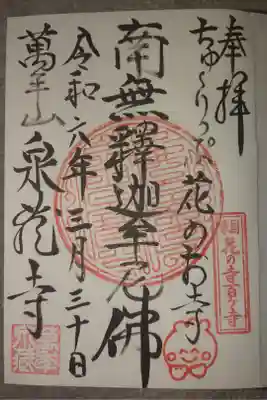 奉拝
ちゅーりっぷ 花のお寺
南無釋迦牟尼佛
令和六年三月三十日
萬年山 泉 寺
国 花の寺百ヶ寺